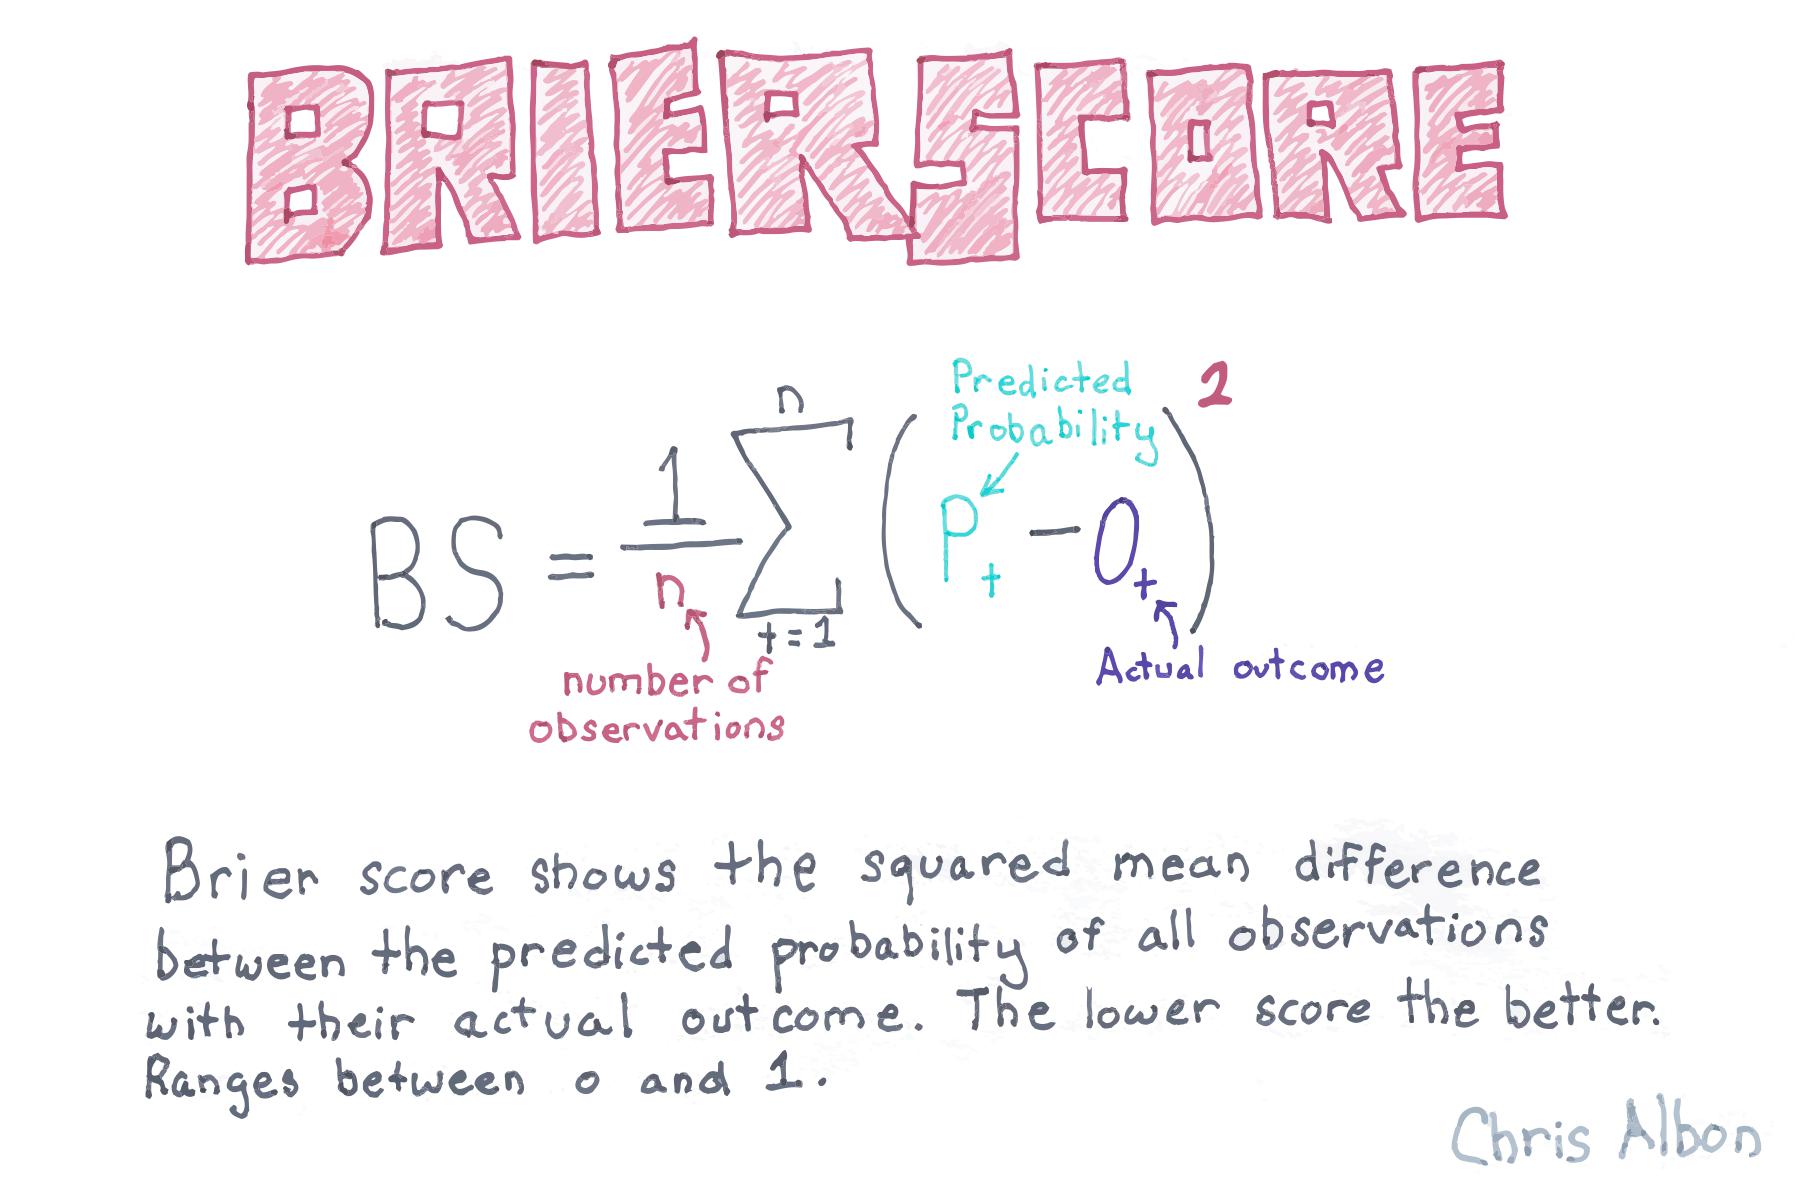 BRIER SCORE
Predicted
Probability
BS = 1/n n Σ t=1 (Pt − Ot)²
number of
observations
Actual outcome
Brier score shows the squared mean difference
between the predicted probability of all observations
with their actual outcome. The lower score the better.
Ranges between 0 and 1.
Chris Albon